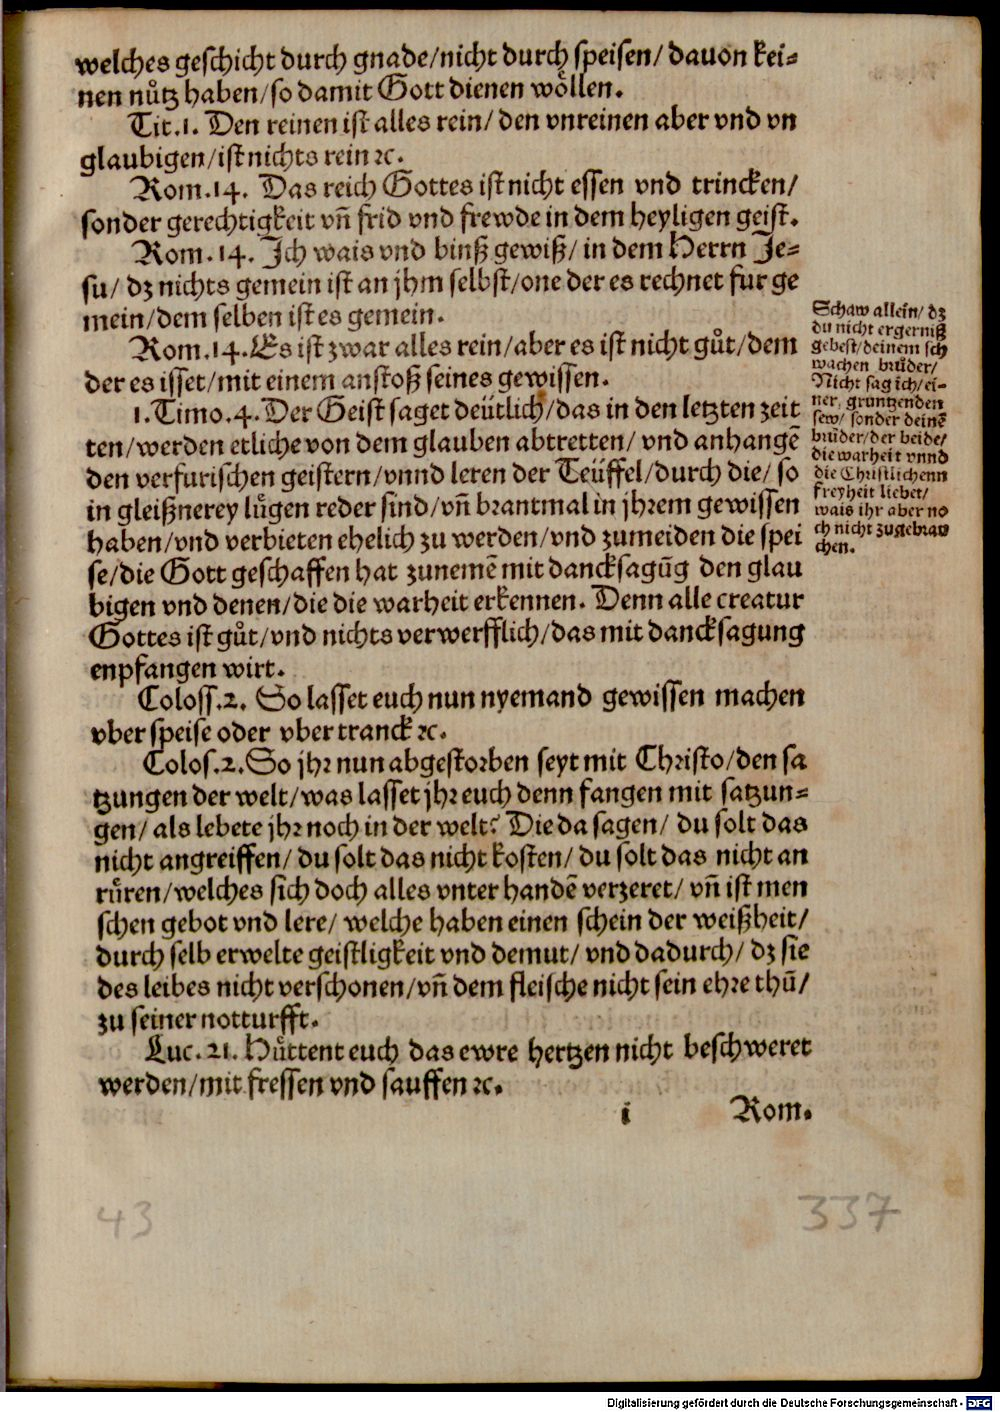 welches geschicht durch gnade/nicht durch speisen/ dauon kei⸗
nen nuͤtz haben/so damit Gott dienen woͤllen.
Tit.1. Den reinen ist alles rein/ den vnreinen aber vnd vn
glaubigen/ist nichts rein ⁊c.
Rom.14. Das reich Gottes ist nicht essen vnd trincken/
sonder gerechtigkeit vñ frid vnd frewde in dem heyligen geist.
Rom.14. Ich wais vnd binß gewiß/ in dem Herrn Je⸗
su/ dz nichts gemein ist an jhm selbst/one der es rechnet fur ge
mein/dem selben ist es gemein.
Rom.14.Es ist zwar alles rein/aber es ist nicht guͤt/dem
der es isset/mit einem anstoß seines gewissen.
1.Timo.4.Der Geist saget deütlich/das in den letzten zeit
ten/werden etliche von dem glauben abtretten/ vnd anhangẽ
den verfurischen geistern/vnnd leren der Teüffel/durch die/ so
in gleißnerey luͤgen reder sind/vñ brantmal in jhrem gewissen
haben/vnd verbieten ehelich zu werden/vnd zumeiden die spei
se/die Gott geschaffen hat zunemẽ mit dancksagũg den glau
bigen vnd denen/die die warheit erkennen. Denn alle creatur
Gottes ist guͤt/vnd nichts verwerfflich/das mit dancksagung
enpfangen wirt.
Coloss.2. So lasset euch nun nyemand gewissen machen
vber speise oder vber tranck ⁊c.
Colos.2.So jhr nun abgestorben seyt mit Christo/den sa
tzungen der welt/was lasset jhr euch denn fangen mit satzun⸗
gen/ als lebete jhr noch in der welt? Die da sagen/ du solt das
nicht angreiffen/ du solt das nicht kosten/ du solt das nicht an
ruͤren/welches sich doch alles vnter handẽ verzeret/ vñ ist men
schen gebot vnd lere/ welche haben einen schein der weißheit/
durch selb erwelte geistligkeit vnd demut/ vnd dadurch/ dz sie
des leibes nicht verschonen/vñ dem fleische nicht sein ehre thũ/
zu seiner notturfft.
Luc.21. Huͤttent euch das ewre hertzen nicht beschweret
werden/mit fressen vnd sauffen ⁊c.
i Rom.
Schaw allein/ dz
du nicht ergerniß
gebest/deinem sch
wachen bruͤder/
Nicht sag ich/ ei⸗
ner, gruntzenden
sew/ sonder deinẽ
bruͤder/der beide/
die warheit vnnd
die Christlichenn
freyheit liebet/
wais ihr aber no
ch nicht zugebrau
chen.
43 337
Digitalisierung gefördert durch die Deutsche Forschungsgemeinschaft - DFG